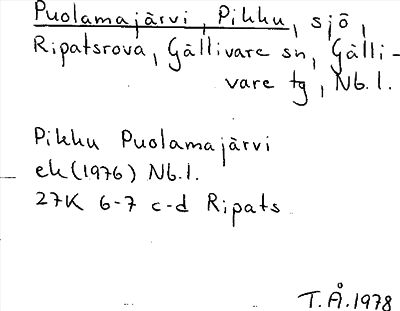 Puolamajärvi, Pikku, sjö,
Ripatsrova, Gällivare sn, Gälli-
vare tg, Nb.l.
Pikku Puolamajärvi
ek (1976) Nb.l.
27K 6-7 c-d Ripats
T.Å. 1978